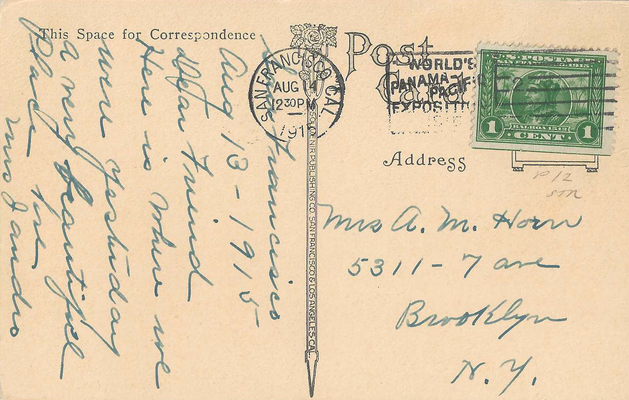 This Space for Correspondence
Post Card
San Francisco
Aug 13 - 1915
Dear Friend
Here is where we
were yesterday
a very beautiful
place
Mrs
SAN FRANCISCO, CAL.
AUG 14
2 30 PM
1915
WORLD'S
PANAMA-PACIFIC
EXPOSITION
U.S. POSTAGE
SAN FRANCISCO 1915
BALBOA 1513
1 CENT 1
Address
Mrs A. M. Horn
5311 - 7 ave
Brooklyn
N. Y.
PUBLISHING CO. SAN FRANCISCO & LOS ANGELES, CAL.